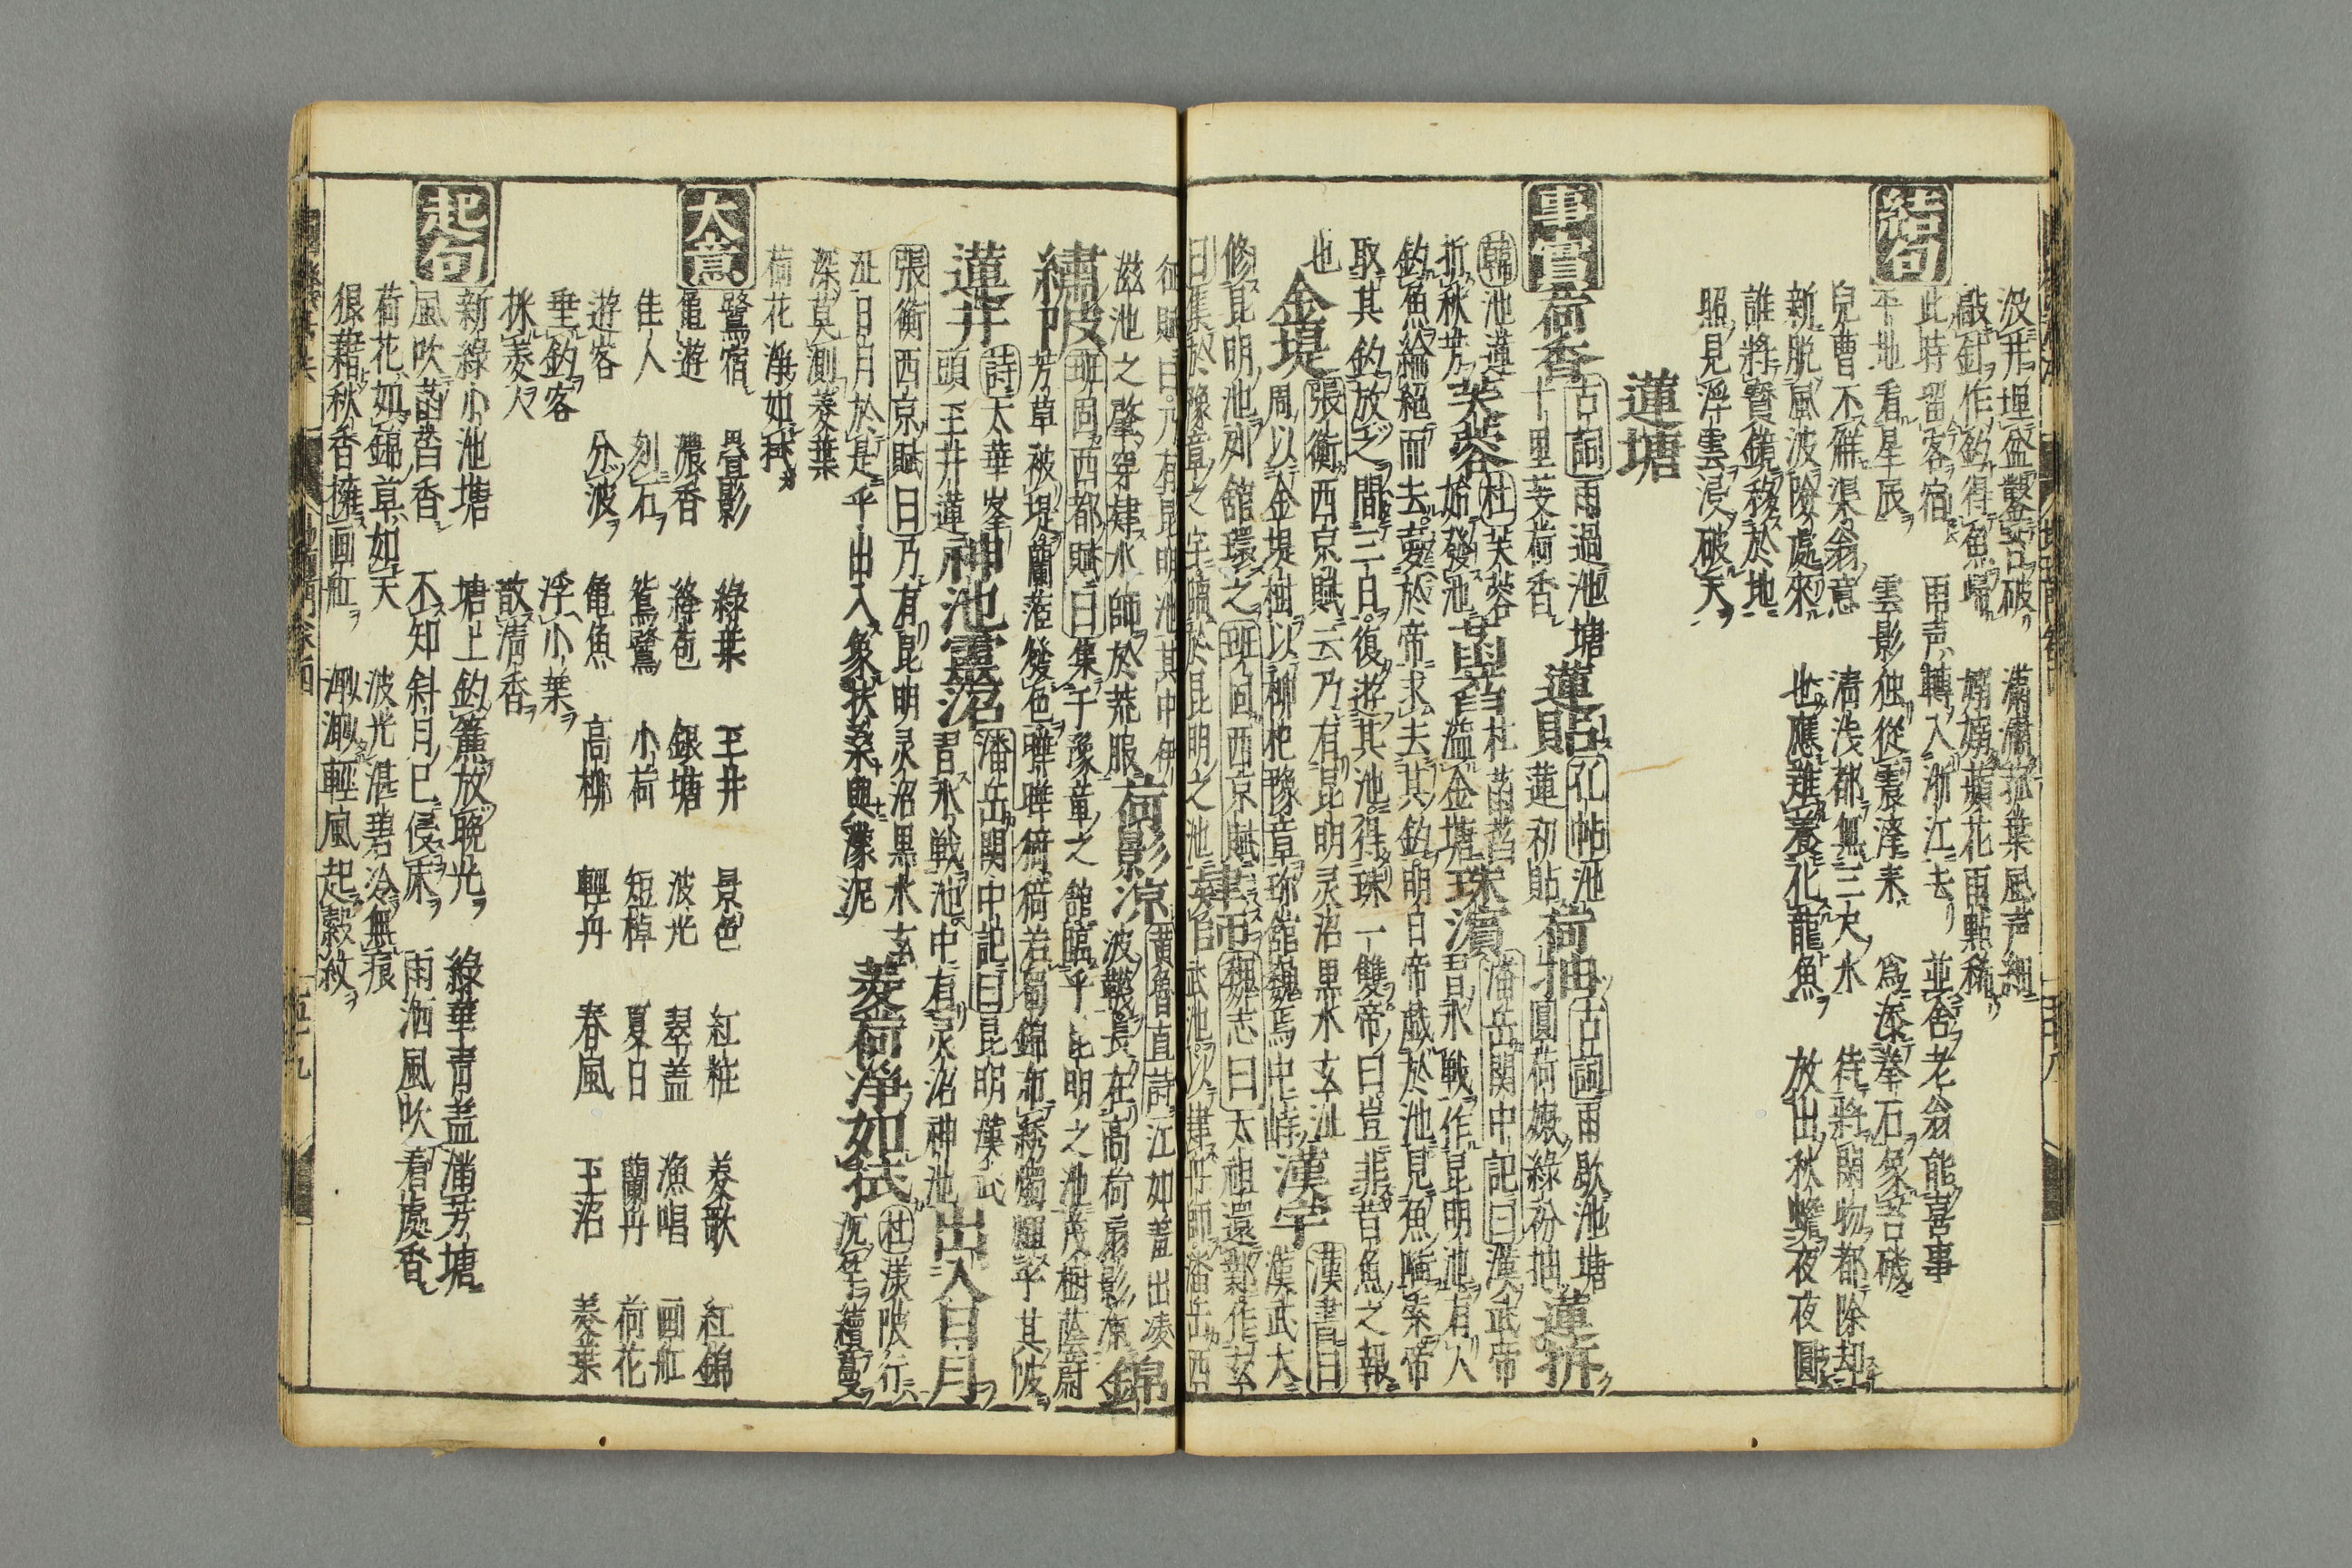 結句
汲井埋盆鑿苔破 瀟瀟菰葉風声細
敲針作釣得魚帰 嫋嫋蘋花雨點稀
此時留客宿 雨声轉入淅江去 並舎老翁能喜事
平地看星辰 雲影独從霄澤来 為添拳石象苔磯
児曹不觧渠翁意 清浅都無三尺水 待將閑物都除却
新脱風波険處來 也應難養化龍魚 放出秋蟾夜夜圓
誰將寳鏡移於地
照見浮雲浸破天
蓮塘
事實
荷香 古詞 雨過池塘 十里芰荷香 蓮貼 孔帖 池蓮初貼 荷抽 古詞 雨歇池塘 圓荷嫩綠初抽 蓮拆
韓 池蓮折秋芳 芙蓉 杜 芙蓉始發池 菡萏 杜 菡萏溢金塘 珠濱 潘岳関中記曰 漢武帝習水戦作昆明池有人
釣魚綸絕而去夢於帝求去其釣明日帝戯於池見魚啣索帝
取其釣放之間三日復遊其池得珠一雙帝曰豈非昔魚之報
也 金堤 張衡西京賦云乃有昆明灵沼黒水玄沚周以金堤樹以柳杞豫章珎舘巍焉中峙 漢宇 漢書曰 漢武大
修昆明池列舘環之 班固西京賦 肄師 魏志曰 太祖還鄴作玄武池以肄舟師 潘岳西
征賦曰乃有昆明池其中
滋池之肇穿肄水師於荒服 荷影凉 黄魯直詩 江如盖出凌波韈長在高荷扇影凉 錦
繡陂 班固西都賦曰 集乎豫章之舘臨乎昆明之池茂樹蔭蔚芳草被堤蘭茝發色曄曄猗猗若擒錦布綉燭燿乎其陂
蓮井 詩 太華峯頭玉井蓮 神池靈沼 潘岳関中記曰 昆明漢武習水戦池中有灵沼神池 出入日月
張衡西京賦曰 乃有昆明灵沼黒水玄沚日月於是乎出入象扶桑與濛汜 菱荷浄如拭 杜渼陂行 沉竿續蔓
深莫測菱葉
荷花浄如拭
大意
鷺宿 曇影 綠葉 玉井 景色 紅粧 菱歌 紅錦
亀遊 濃香 絳苞 銀塘 波光 翠盖 漁唱 画舡
佳人 刻石 鴛鷺 小荷 短棹 夏日 蘭舟 荷花
遊客 分波 亀魚 高柳 輕舟 春風 玉沼 菱葉
垂釣客 浮小葉
採菱人 散清香
起句
新綠小池塘 塘上釣簾放晚光 綠華青盖満芳塘
風吹菡萏香 不知斜月已侵床 雨洒風吹看處香
荷花如錦草如天 波光湛碧冷無痕
狼藉秋香擁画舡 溦溦輕風起縠紋